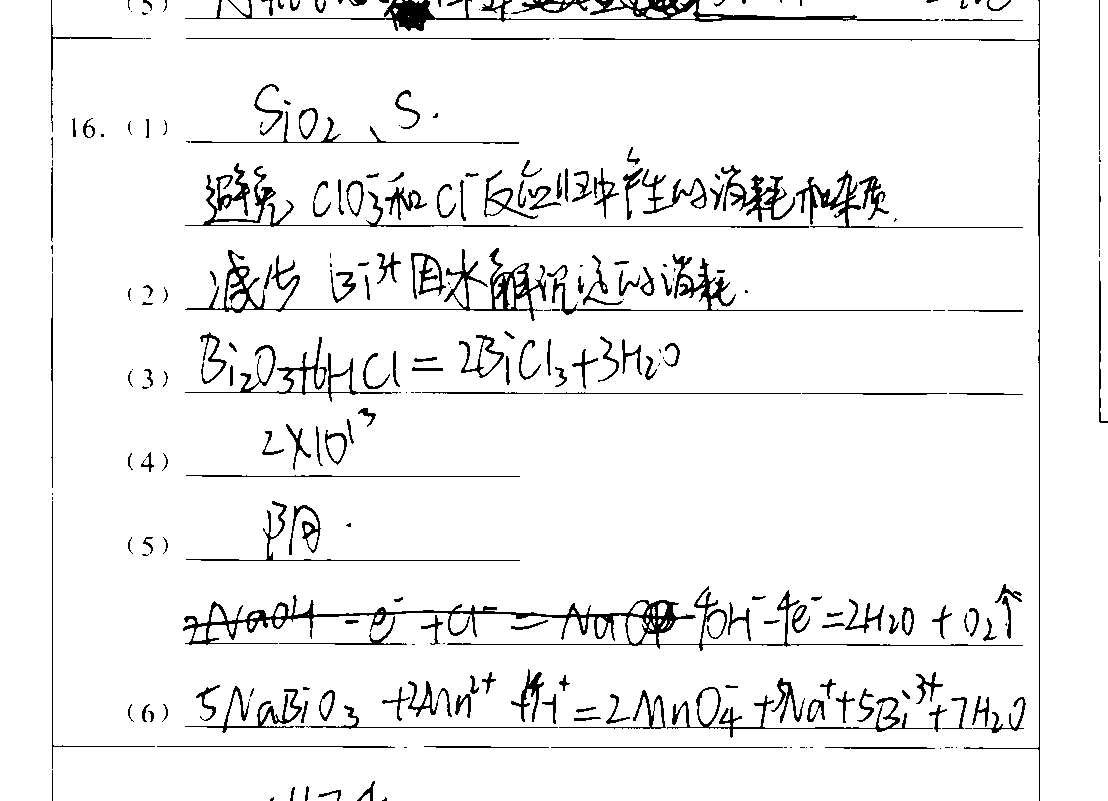 (5)
16. (1) SiO₂、S.
避免 ClO₃⁻和Cl⁻反应归中产生的消耗和杂质.
(2) 减少 Bi³⁺因水解沉淀的消耗.
(3) Bi₂O₃+6HCl=2BiCl₃+3H₂O
(4) 2×10¹³
(5) 阴.
4OH⁻-4e⁻=2H₂O+O₂↑
(6) 5NaBiO₃+2Mn²⁺+14H⁺=2MnO₄⁻+5Na⁺+5Bi³⁺+7H₂O